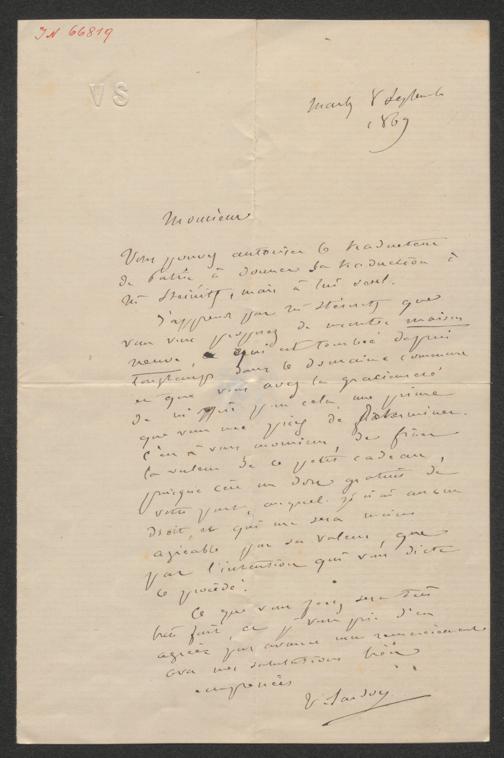 IN 66819
VS
Marly 8 Septembre
1869
Monsieur
Vous pouvez autoriser le traducteur
de Patrie à donner sa traduction à
Mr Steinitz, mais à lui seul.
J'apprends par Mr Steinitz que
vous vous proposez de monter maison
neuve, qui est tombée depuis
longtemps dans le domaine commun
et que vous avez la gracieuseté
de m'offrir pour cela une prime
que vous me priez de déterminer.
C'est à vous monsieur, de fixer
la valeur de ce petit cadeau,
puisque c'est un don gratuit de
votre part, auquel je n'ai aucun
droit, et qui me sera moins
agréable par sa valeur, que
par l'intention qui vous dicte
ce procédé.
Ce que vous ferez sera très
bien fait, et je vous prie d'en
agréer par avance mes remerciements
avec mes salutations bien
empressées
V. Sardou